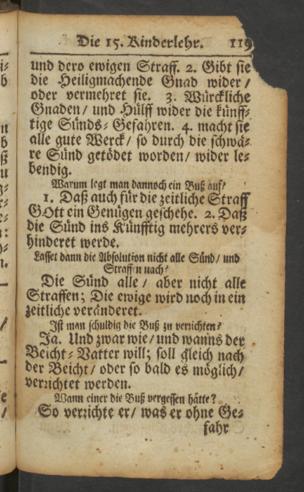 Die 15. Kinderlehr. 119
und dero ewigen Straff. 2. Gibt sie
die Heiligmachende Gnad wider /
oder vermehret sie. 3. Würckliche
Gnaden / und Hülff wider die künff-
tige Sünds-Gefahren. 4. macht sie
alle gute Werck / so durch die schwä-
re Sünd getödet worden / wider le-
bendig.
Warum legt man dannoch ein Buß auf?
1. Daß auch für die zeitliche Straff
GOtt ein Genügen geschehe. 2. Daß
die Sünd ins Künfftig mehrers ver-
hinderet werde.
Lasset dann die Absolution nicht alle Sünd / und
Straffen nach?
Die Sünd alle / aber nicht alle
Straffen; Die ewige wird noch in ein
zeitliche veränderet.
Ist man schuldig die Buß zu verrichten?
Ja. Und zwar wie / und wanns der
Beicht-Vatter will; soll gleich nach
der Beicht / oder so bald es möglich /
verrichtet werden.
Wann einer die Buß vergessen hätte?
So verrichte er / was er ohne Ge-
fahr